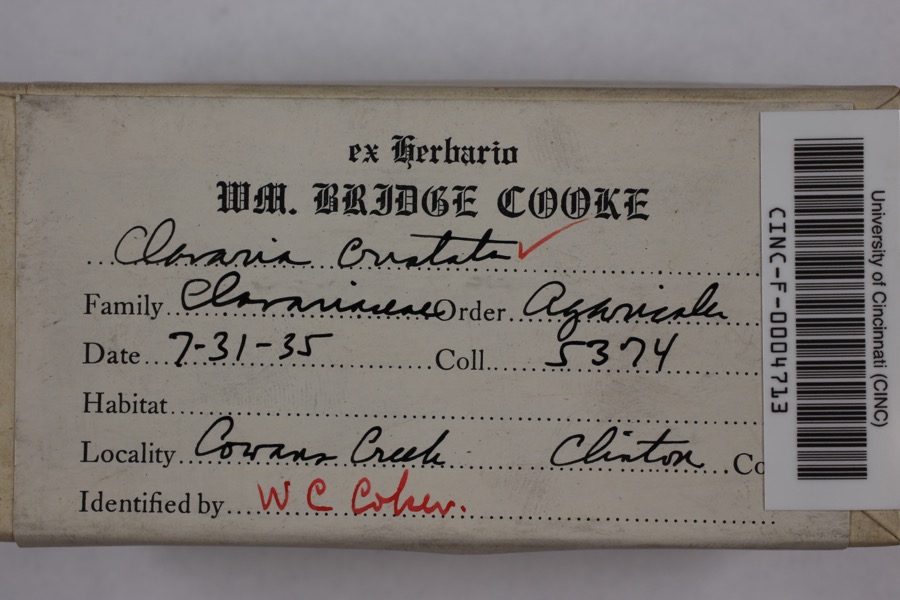 ex Herbario
WM. BRIDGE COOKE
Clavaria cristata ✓
Family Clavariaceae Order Agaricales
Date 7-31-35 Coll. 5374
Habitat
Locality Cowans Creek Clinton Co
Identified by W C Coker.
University of Cincinnati (CINC)
CINC-F-0004713